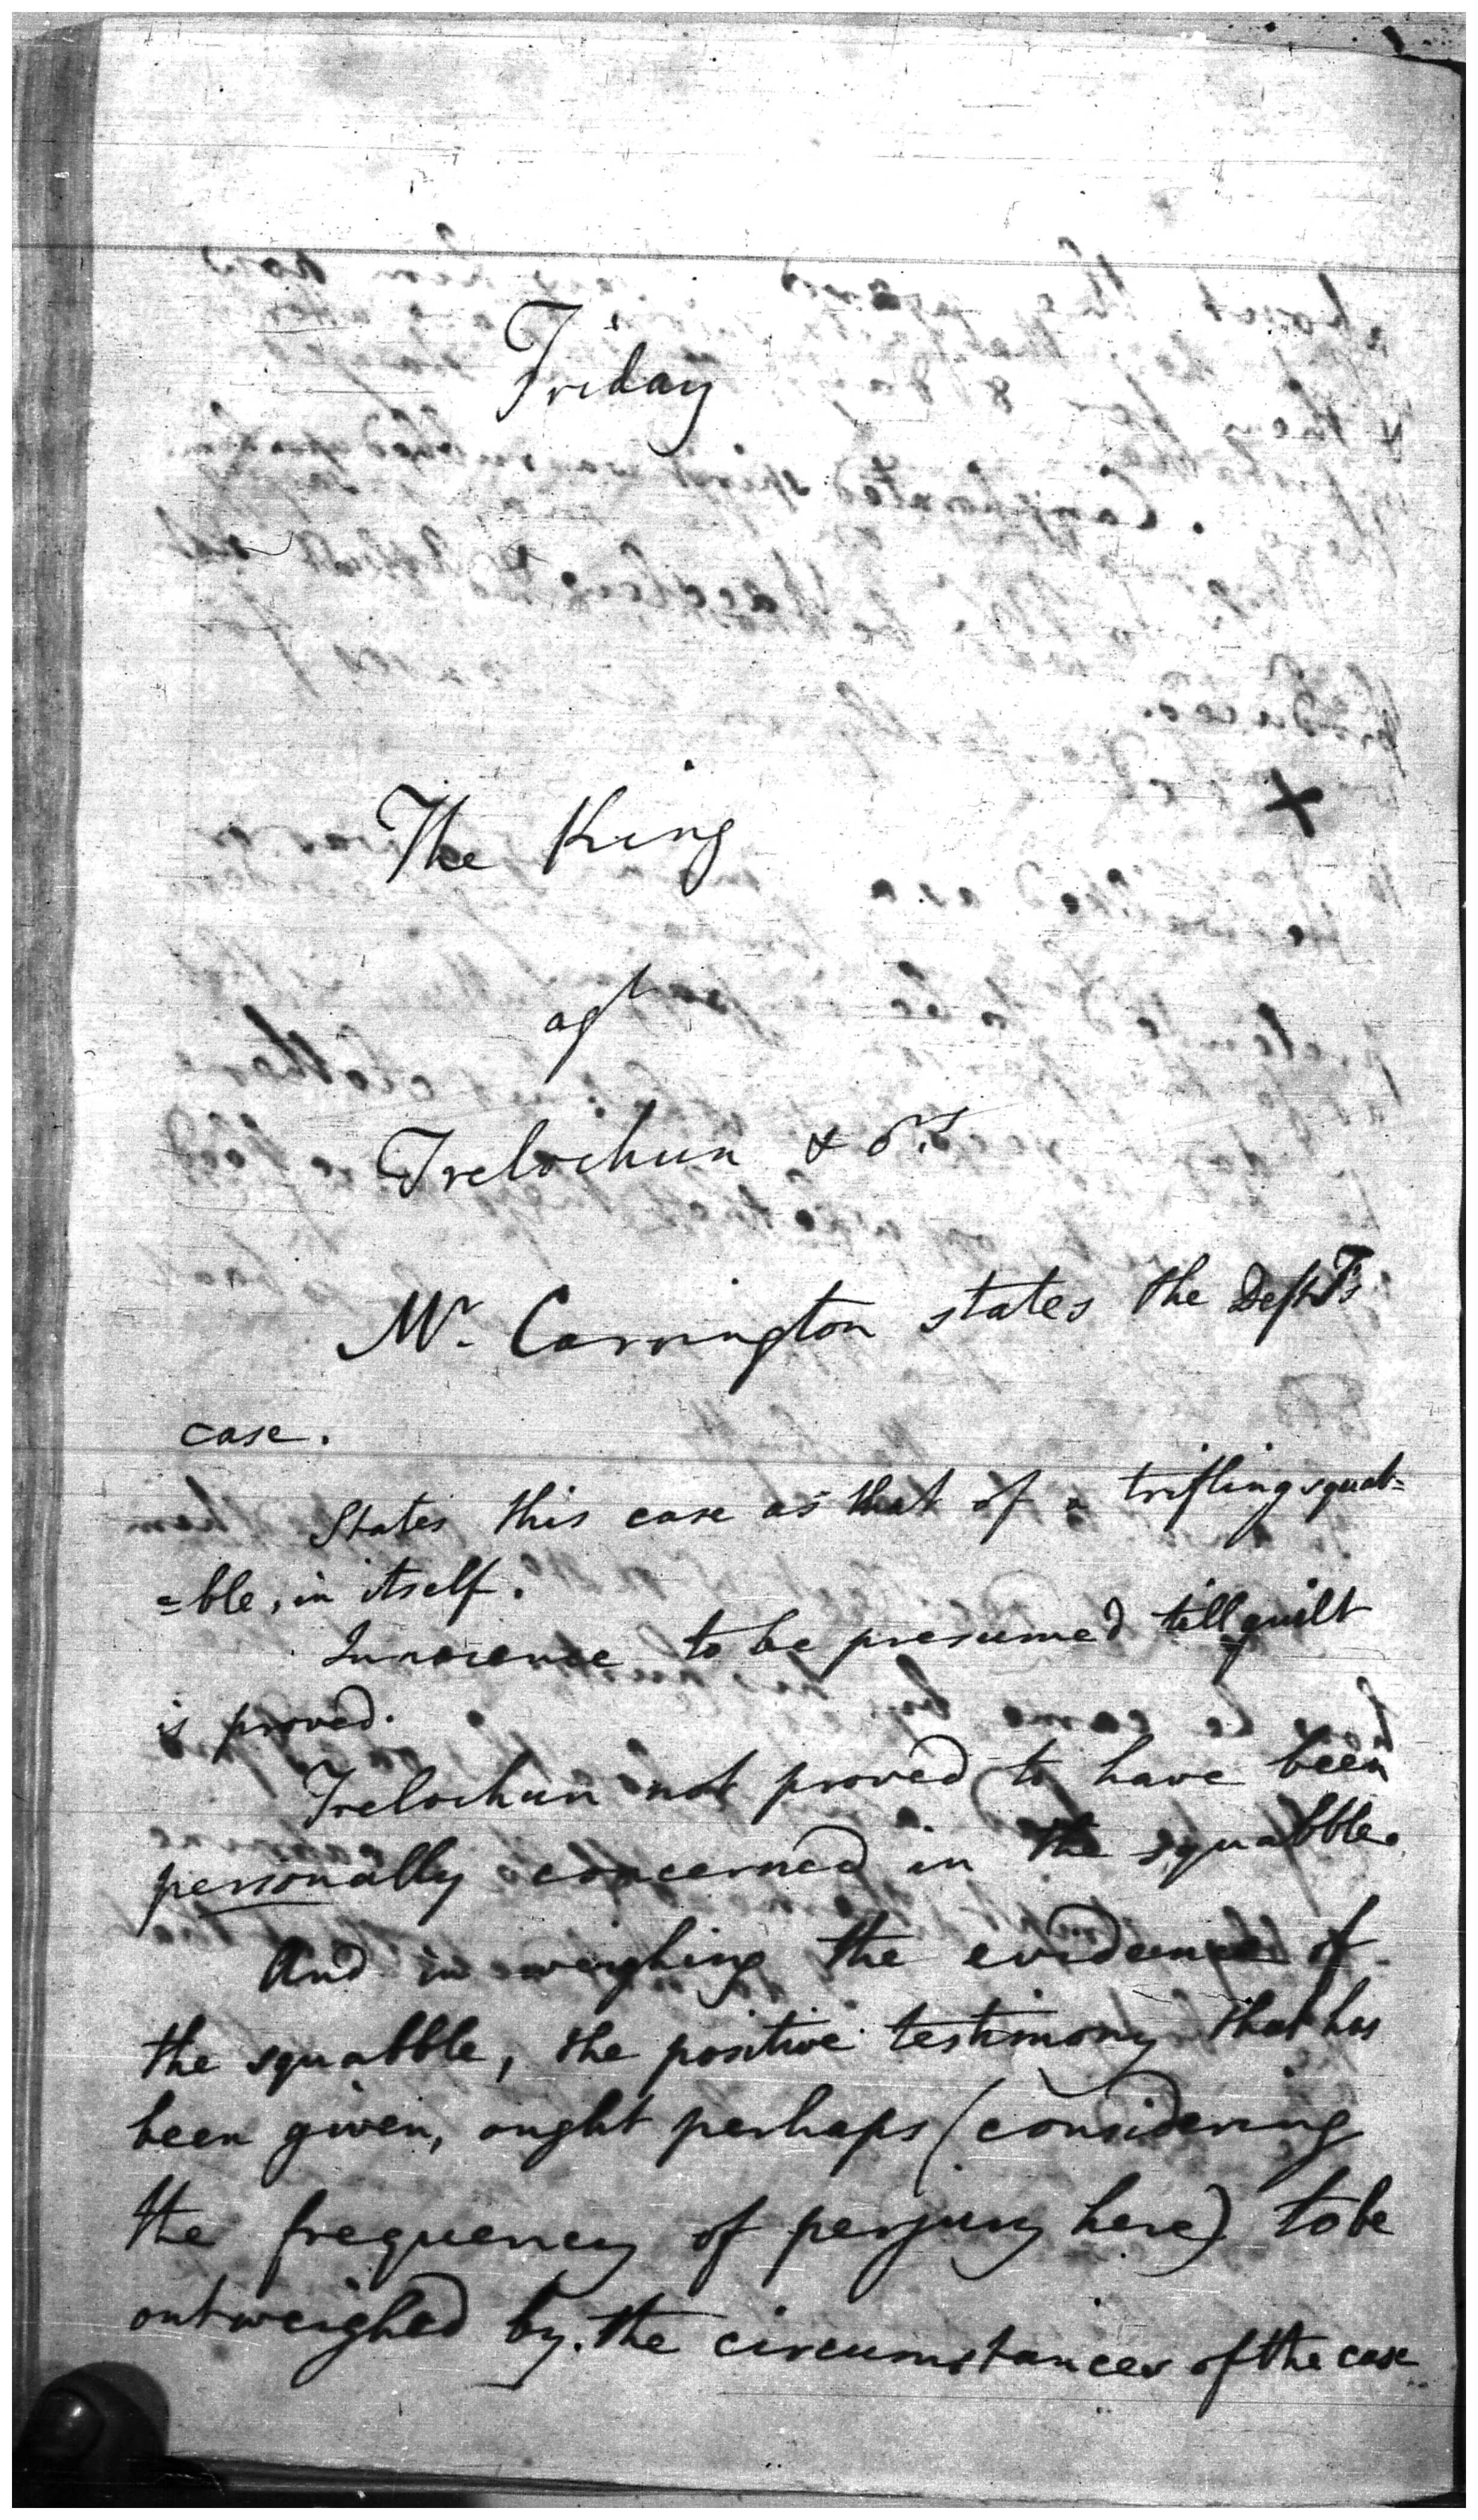 Friday
The King
agt
Trelochun & ors
Mr. Carrington states the Defts
case.
States this case as that of a trifling squab=
=ble, in itself.
Innocence to be presumed till guilt
is proved.
Trelochun not proved to have been
personally concerned in the squabble.
And in weighing the evidence of
the squabble, the positive testimony that has
been given, ought perhaps (considering
the frequency of perjury here) to be
outweighed by the circumstances of the case